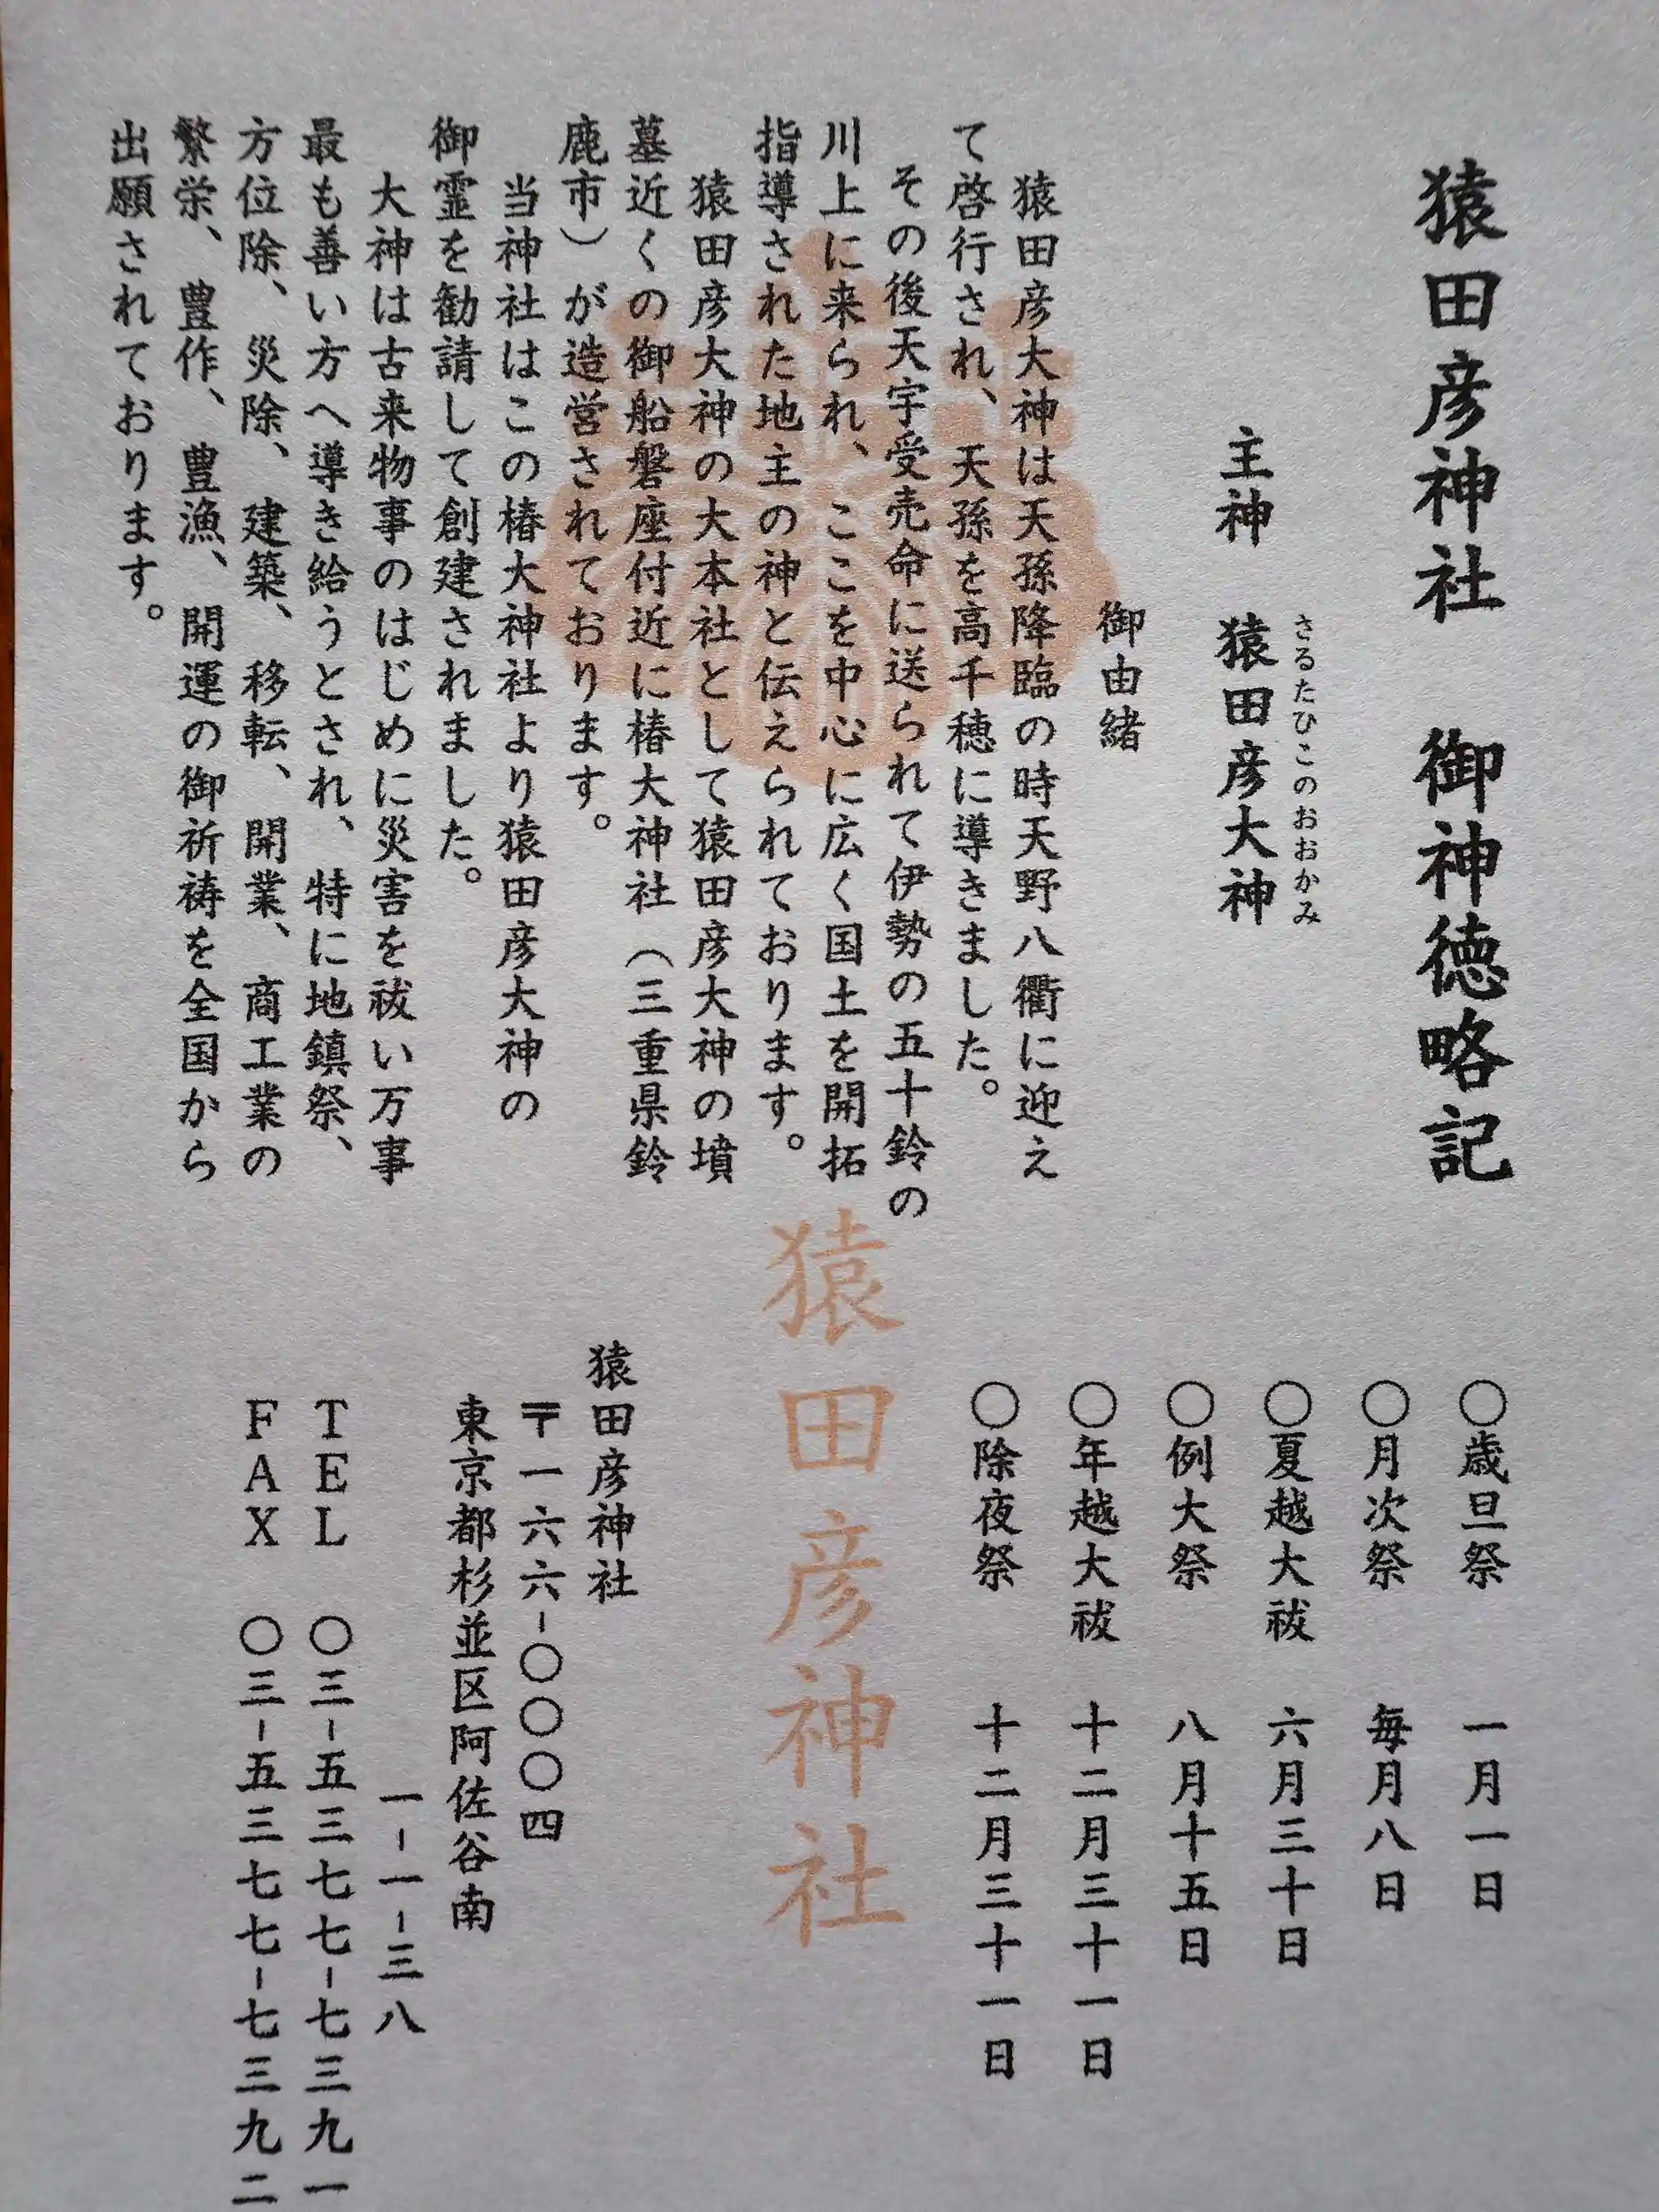 猿田彦神社　御神徳略記
主神　猿田彦大神
さるたひこのおおかみ
御由緒
猿田彦大神は天孫降臨の時天野八衢に迎え
て啓行され、天孫を高千穂に導きました。
その後天宇受売命に送られて伊勢の五十鈴の
川上に来られ、ここを中心に広く国土を開拓
指導された地主の神と伝えられております。
猿田彦大神の大本社として猿田彦大神の墳
墓近くの御船磐座付近に椿大神社（三重県鈴
鹿市）が造営されております。
当神社はこの椿大神社より猿田彦大神の
御霊を勧請して創建されました。
大神は古来物事のはじめに災害を祓い万事
最も善い方へ導き給うとされ、特に地鎮祭、
方位除、災除、建築、移転、開業、商工業の
繁栄、豊作、豊漁、開運の御祈祷を全国から
出願されております。
〇歳旦祭　一月一日
〇月次祭　毎月八日
〇夏越大祓　六月三十日
〇例大祭　八月十五日
〇年越大祓　十二月三十一日
〇除夜祭　十二月三十一日
猿田彦神社
猿田彦神社
〒一六六-〇〇〇四
東京都杉並区阿佐谷南
一-一-三八
TEL　〇三-五三七七-七三九一
FAX　〇三-五三七七-七三九二